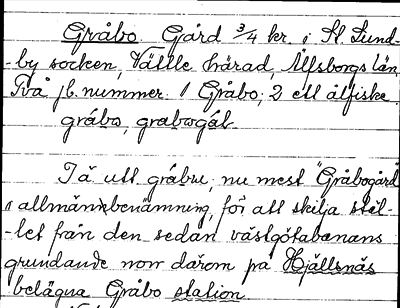 Gråbo. Gård 3/4 kr. i St. Lund-
-by socken, Vättle härad, Älfsborgs län.
Två jb. nummer. 1 Gråbo; 2 ett ålfiske.
gråbo, grabogål.
Tå utt gråbu; nu mest "Gråbogård"
i allmän benämning, för att skilja stäl-
-let från den sedan västgötabanans
grundande norr därom på Hjällsnäs
belägna Gråbo station